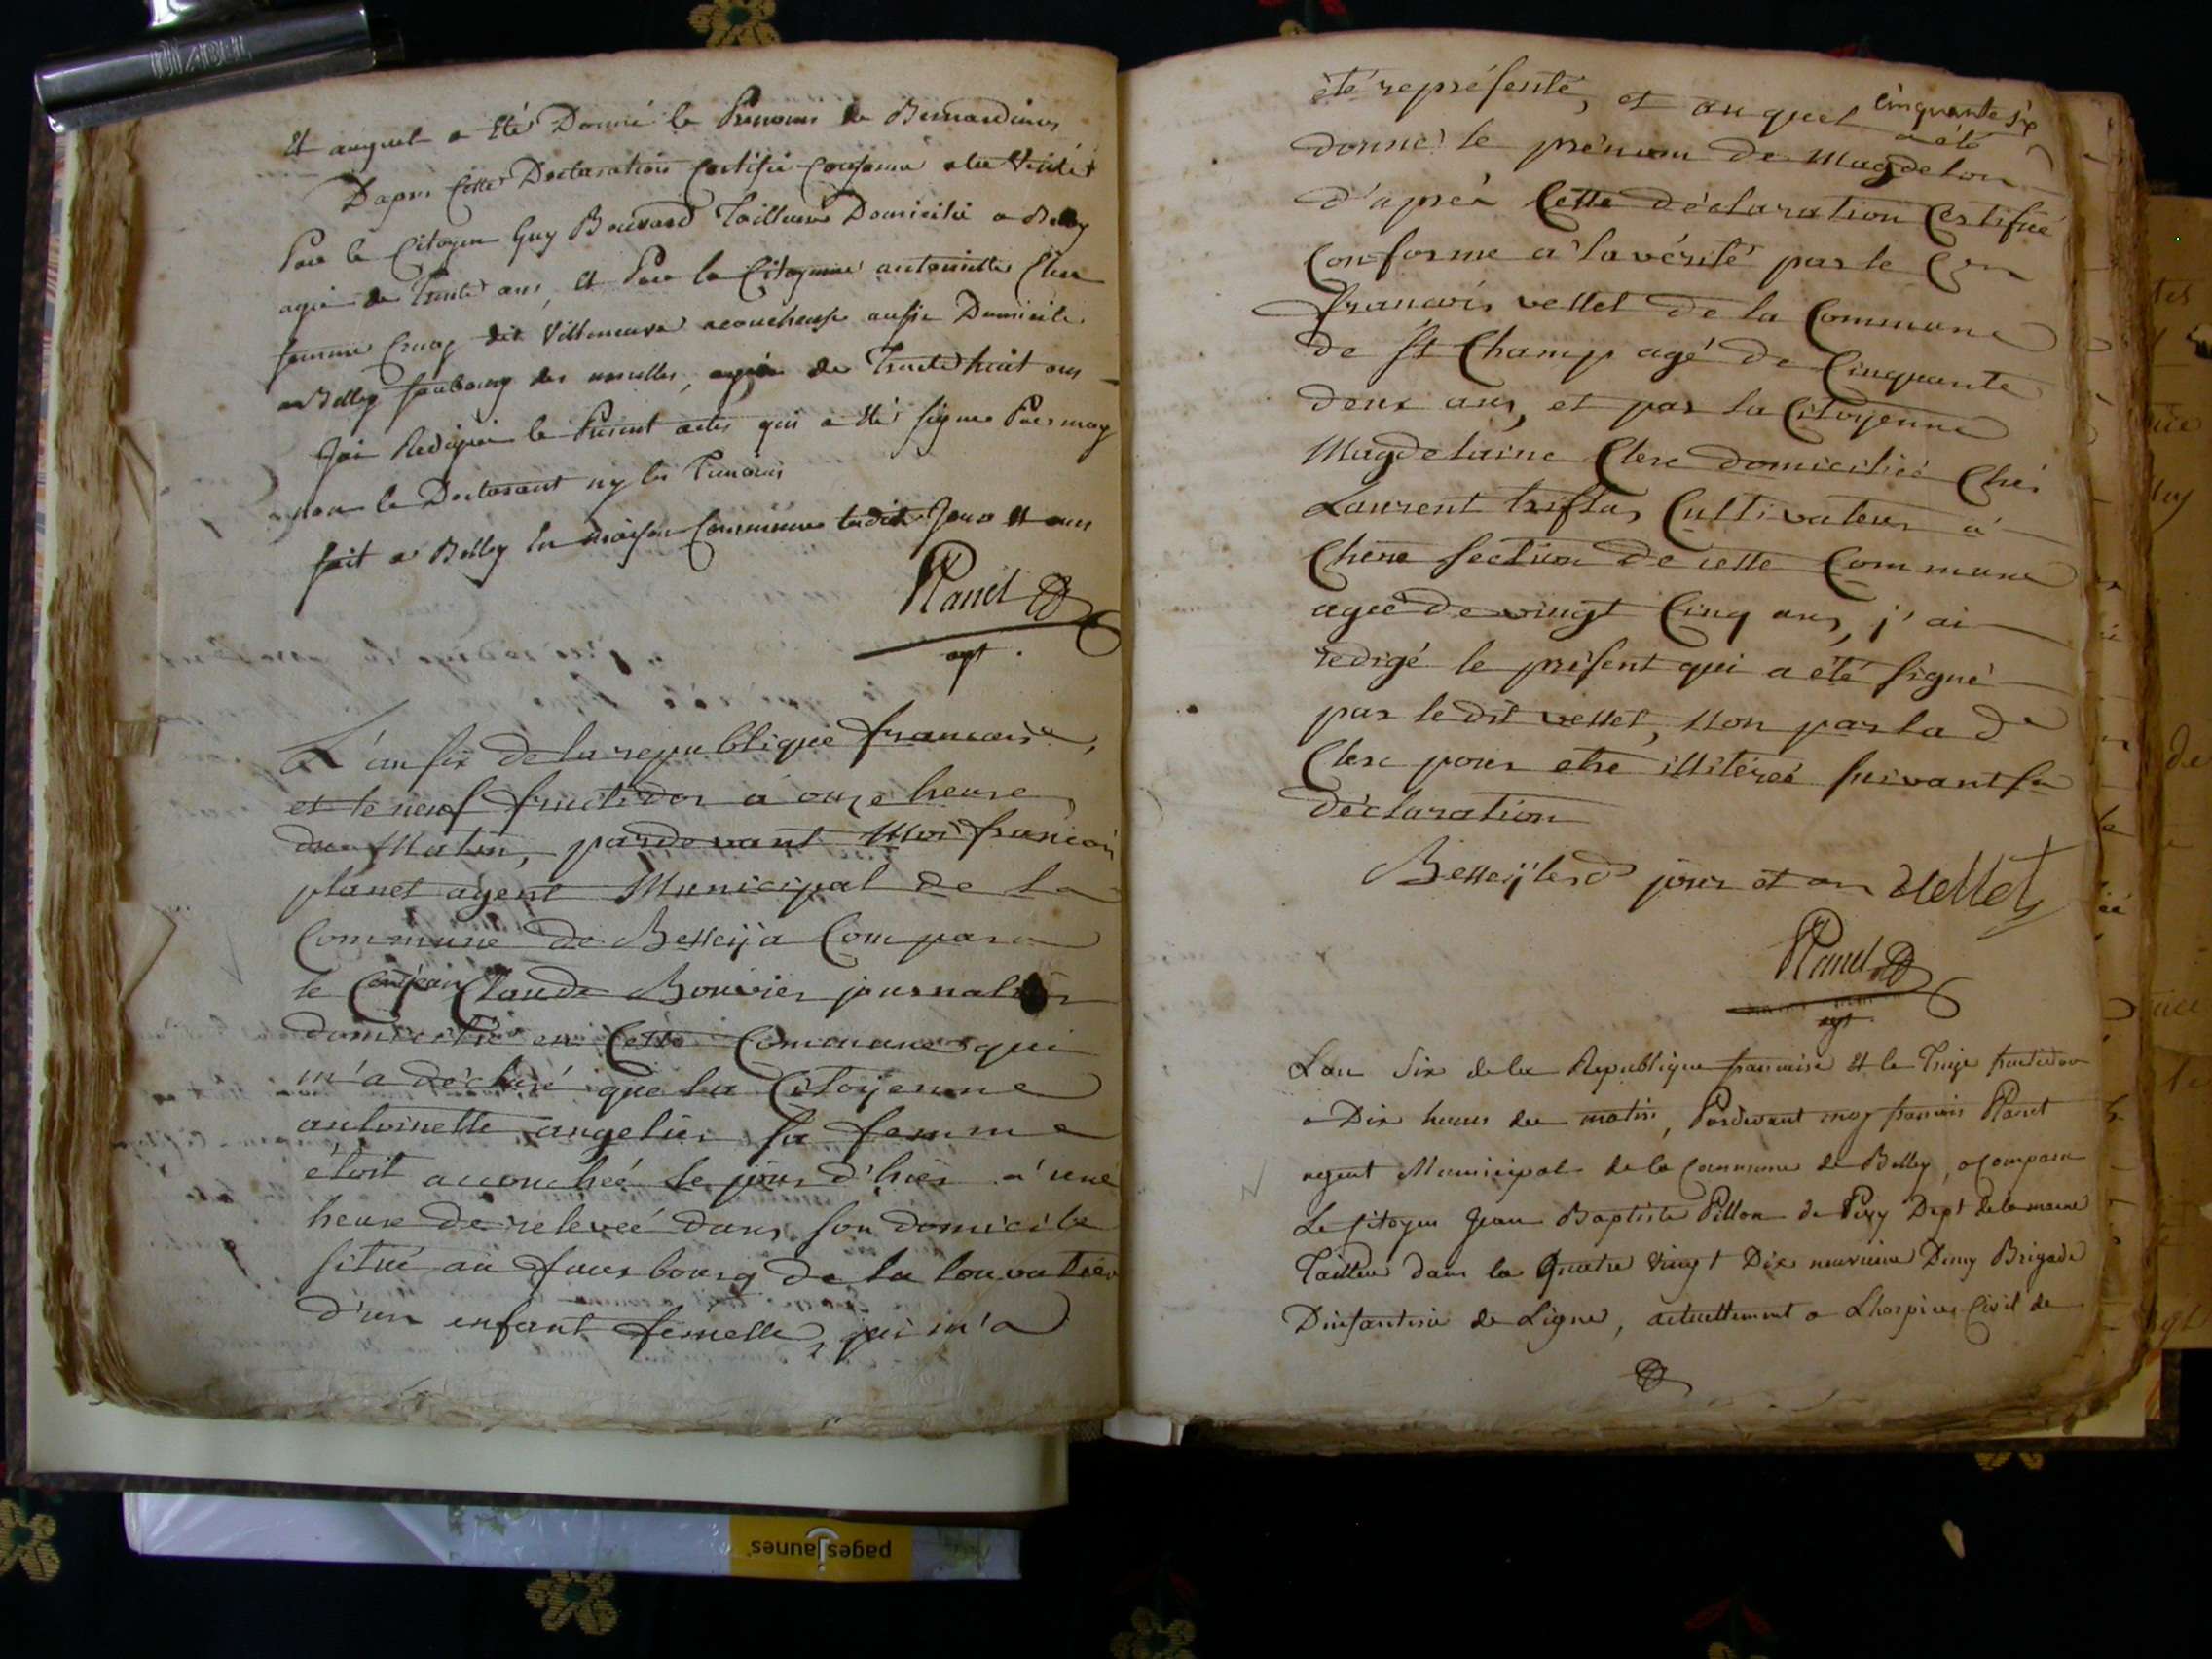 Et auquel a Eté Donné le Prenom de Bernardine
Dapres Cette Declaration Certifié Conforme a la Verité
Par le Citoyen Guy Bouvard Tailleur Domicilié a Belley
agé de Trente ans, Et Par la Citoyenne antoinette
femme dit Villeneuve acoucheuse aussi Domicile
a Belley faubourg des, agée de Trente huit ans
Jai Redigée le Present acte qui a Eté signe Par moy
non le Declarant ny les Temoins
fait a Belley En maison Commune ledit Jour Et an
Planet
agt.
L'an six de la republique francaise,
et le neuf fructidor à onze heure
du Matin, pardevant Moi francois
planet agent Municipal de la
Commune de Belleÿ a Comparu
le Cen jean Claude Bouvier journalier
domicilié en Cette Commune qui
m'a déclaré que la Citoÿenne
antoinette angelier sa femme
étoit accouchée le jour d'hier à une
heure de relevée dans son domicile
situé au fauxbourg de la louvatier
d'un enfant femelle, qui m'a
cinquante six
été représenté, et auquel a été
donné le prénom de Magdelon
d'après Cette déclaration Certifiée
Conforme à la vérité par le Cen
francois vettet de la Commune
de St Champ agé de Cinquante
deux ans, et par la Citoÿenne
Magdelaine Clerc domiciliée Chés
Laurent Cultivateur à
Chêne section de cette Commune
agée de vingt Cinq ans, j'ai
redigé le présent qui a été signé
par le dit vettet, Non par la de
Clerc pour etre illitérée suivant sa
déclaration
Belleÿ lesd jour et an Vettet
Planet
agt
Lan Six de la Republique francaise Et le Treize fructidor
a Dix heures du matin, Pardevant moy francois Planet
agent Municipal de la Commune de Belley, a Comparu
Le Citoyen Jean Baptiste Pillon de Pevy Dept de la marne
Tailleur dans la Quatre Vingt Dix neuvieme Demy Brigade
Dinfanterie de Ligne, actuellement a Lhospice Civil de
pagesjaunes